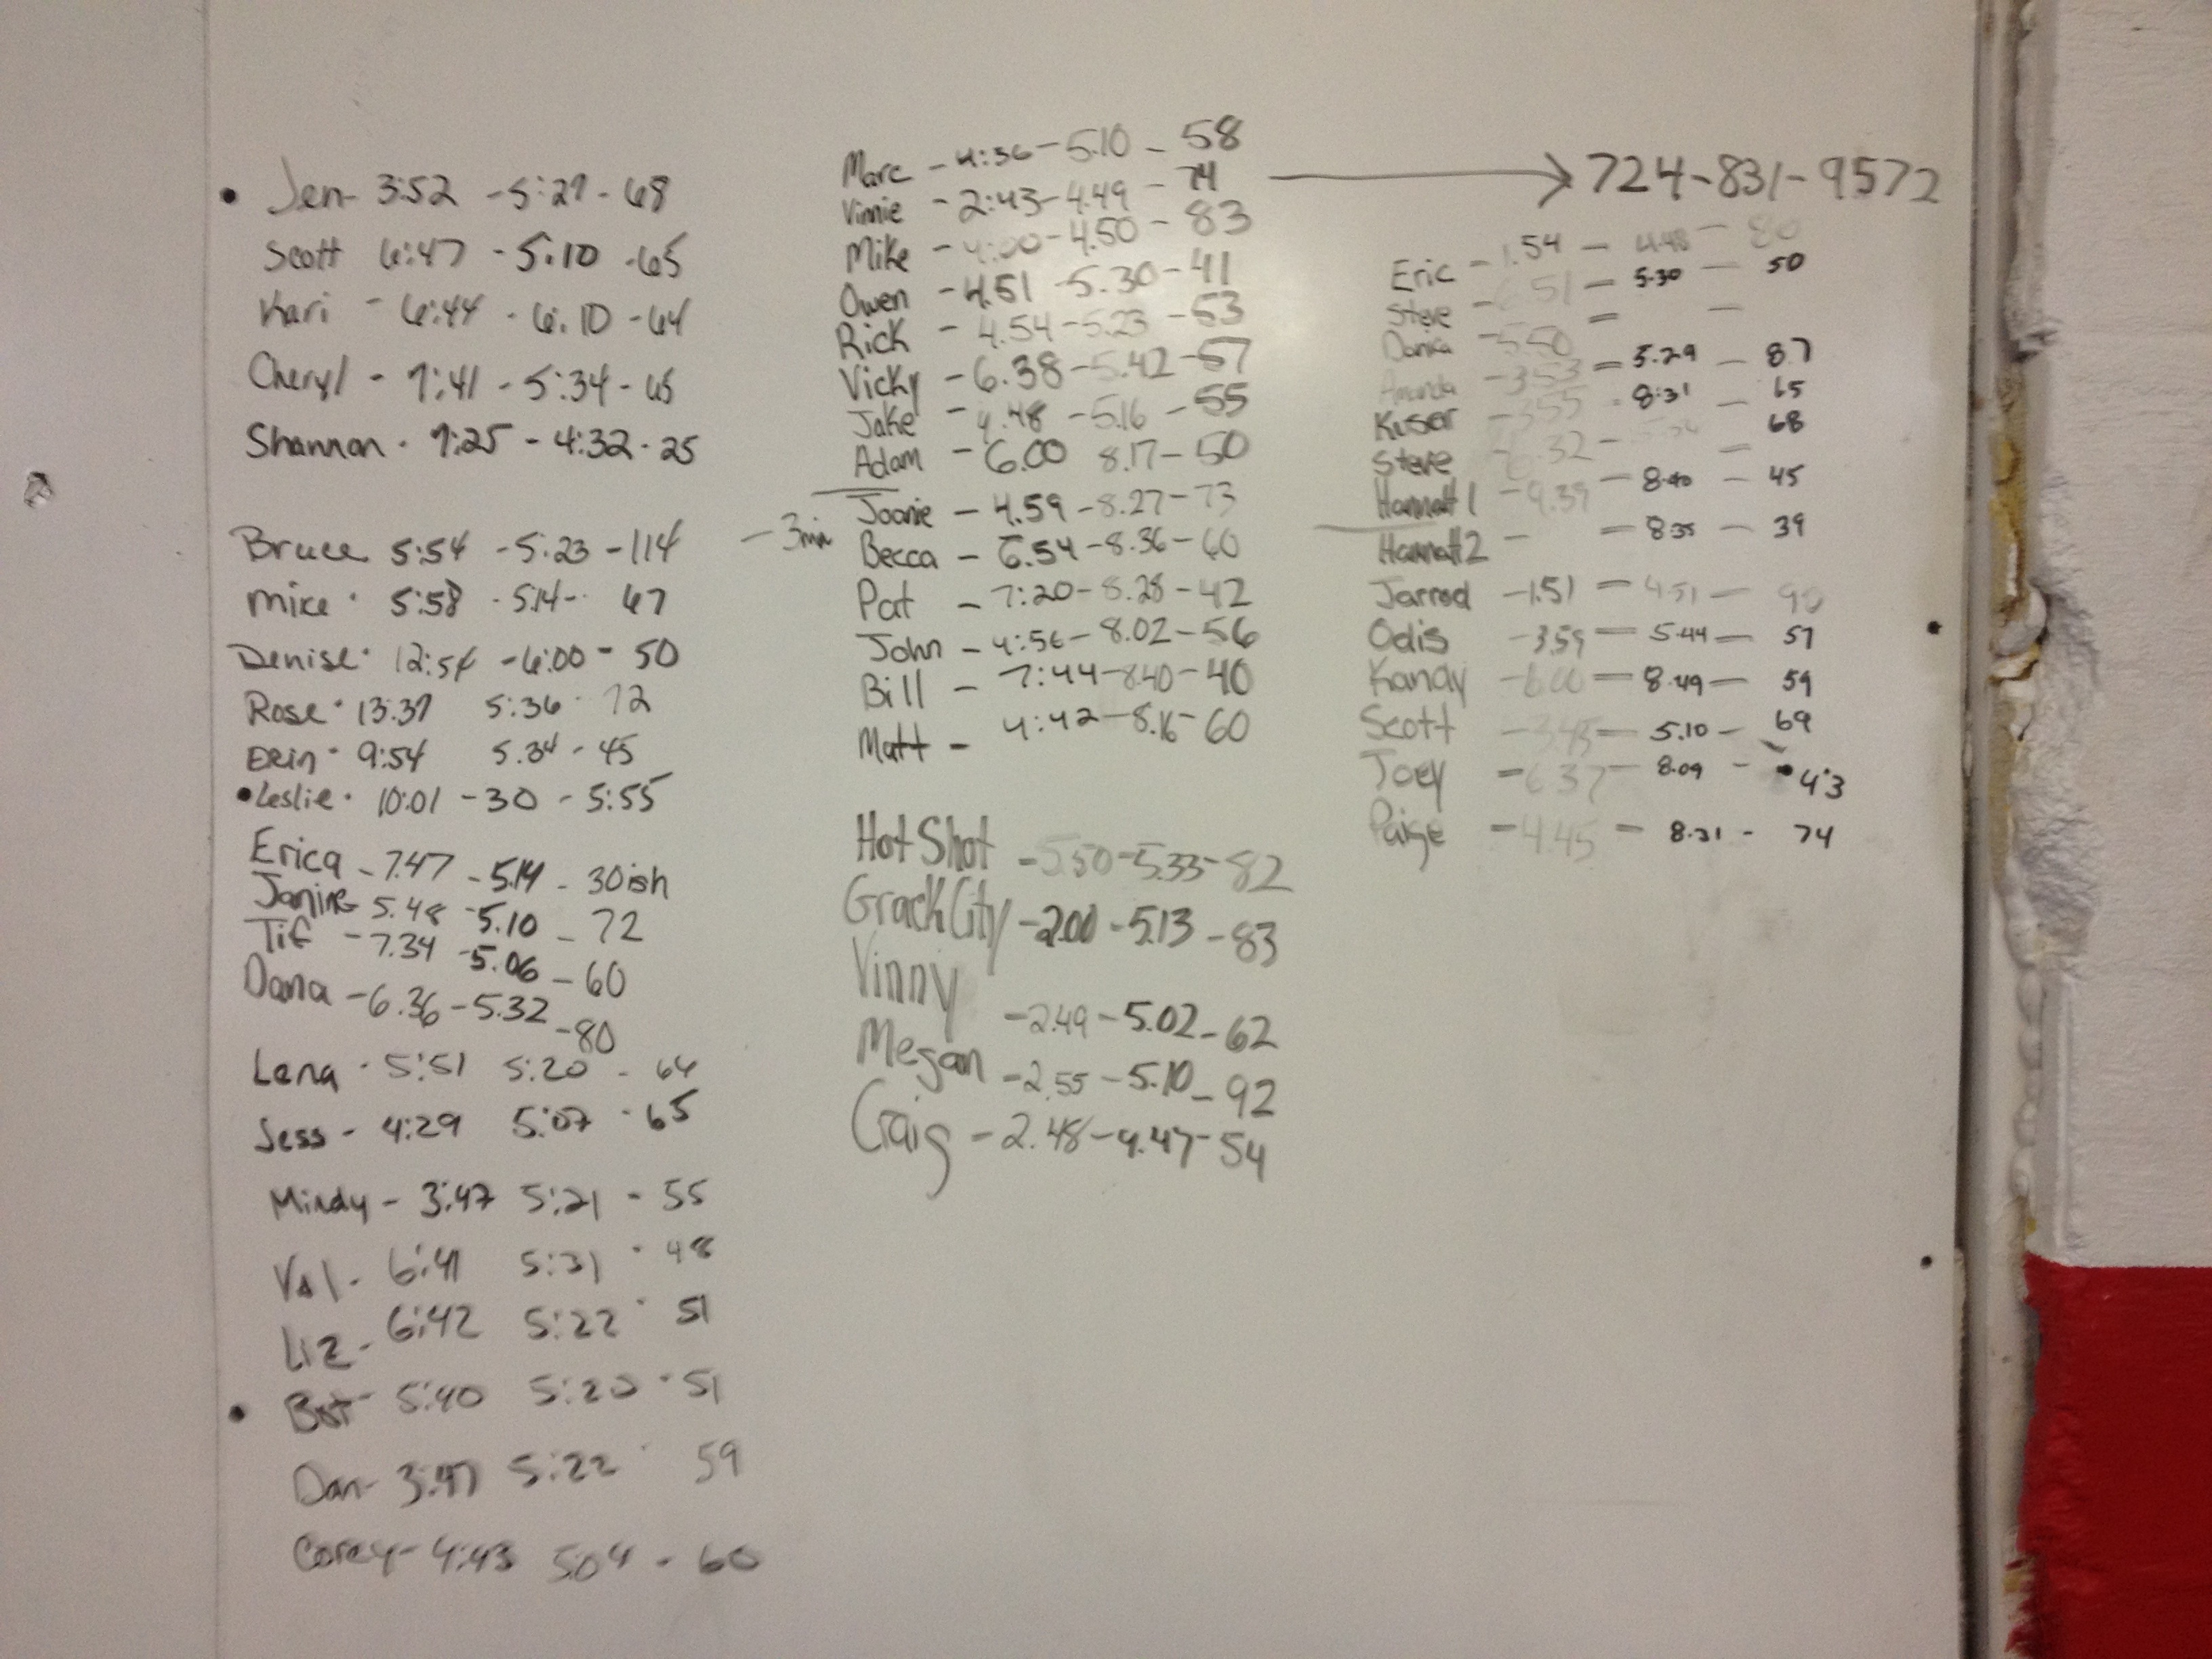 • Jen- 3:52 - 5:27 - 68
Scott 6:47 - 5:10 - 65
Kari - 6:44 - 6:10 - 64
Cheryl - 7:41 - 5:34 - 65
Shannon - 7:25 - 4:32 - 25
Bruce 5:54 - 5:23 - 114
Mike - 5:58 - 5:14 - 67
Denise - 12:54 - 6:00 - 50
Rose - 13:37 5:36 - 72
Erin - 9:54 5:34 - 45
• Leslie - 10:01 - 30 - 5:55
Erica - 7.47 - 5.14 - 30ish
Janine 5.48 - 5.10 - 72
Tif - 7.34 - 5.06 - 60
Dana - 6.36 - 5.32 - 80
Lena - 5:51 5:20 - 64
Jess - 4:29 5:07 - 65
Mindy - 3:47 5:21 - 55
Val - 6:41 5:31 - 48
Liz - 6:42 5:22 - 51
• 5:40 5:20 - 51
Dan - 3:47 5:22 59
Corey - 4:43 5:04 - 60
Marc - 4:36 - 5.10 - 58
Vinnie - 2:43 - 4.49 - 74
Mike - 4:00 - 4.50 - 83
Owen - 4.51 - 5.30 - 41
Rick - 4.54 - 5.23 - 53
Vicky - 6.38 - 5.42 - 57
Jake - 4.48 - 5.16 - 55
Adam - 6.00 8.17 - 50
- 3min
Joanie - 4.59 - 8.27 - 73
Becca - 6.54 - 8.36 - 60
Pat - 7:20 - 8.28 - 42
John - 4:56 - 8.02 - 56
Bill - 7:44 - 8.40 - 40
Matt - 4:42 - 8.16 - 60
Hot Shot - 5.50 - 5.33 - 82
Crack City - 2.00 - 5.13 - 83
Vinny - 2.49 - 5.02 - 62
Megan - 2.55 - 5.10 - 92
Craig - 2.48 - 4.47 - 54
→ 724-831-9572
Eric - 1.54 - 4.48 - 80
Steve - 51 - 5.30 - 50
- 5.50 - -
Amanda - 3.53 - 5.29 - 87
- 3.55 - 8:31 - 65
Steve - 6.32 - - 68
Hannah 1 - 9.39 - 8.40 - 45
Hannah 2 - - 8.35 - 39
Jarrod - 1.51 - 4.51 - 90
Odis - 3.59 - 5.44 - 57
Kandy - 6.00 - 8.49 - 59
Scott - 3.45 - 5.10 - 69
Joey - 6.37 - 8.09 - 43
Paige - 4.45 - 8.31 - 74